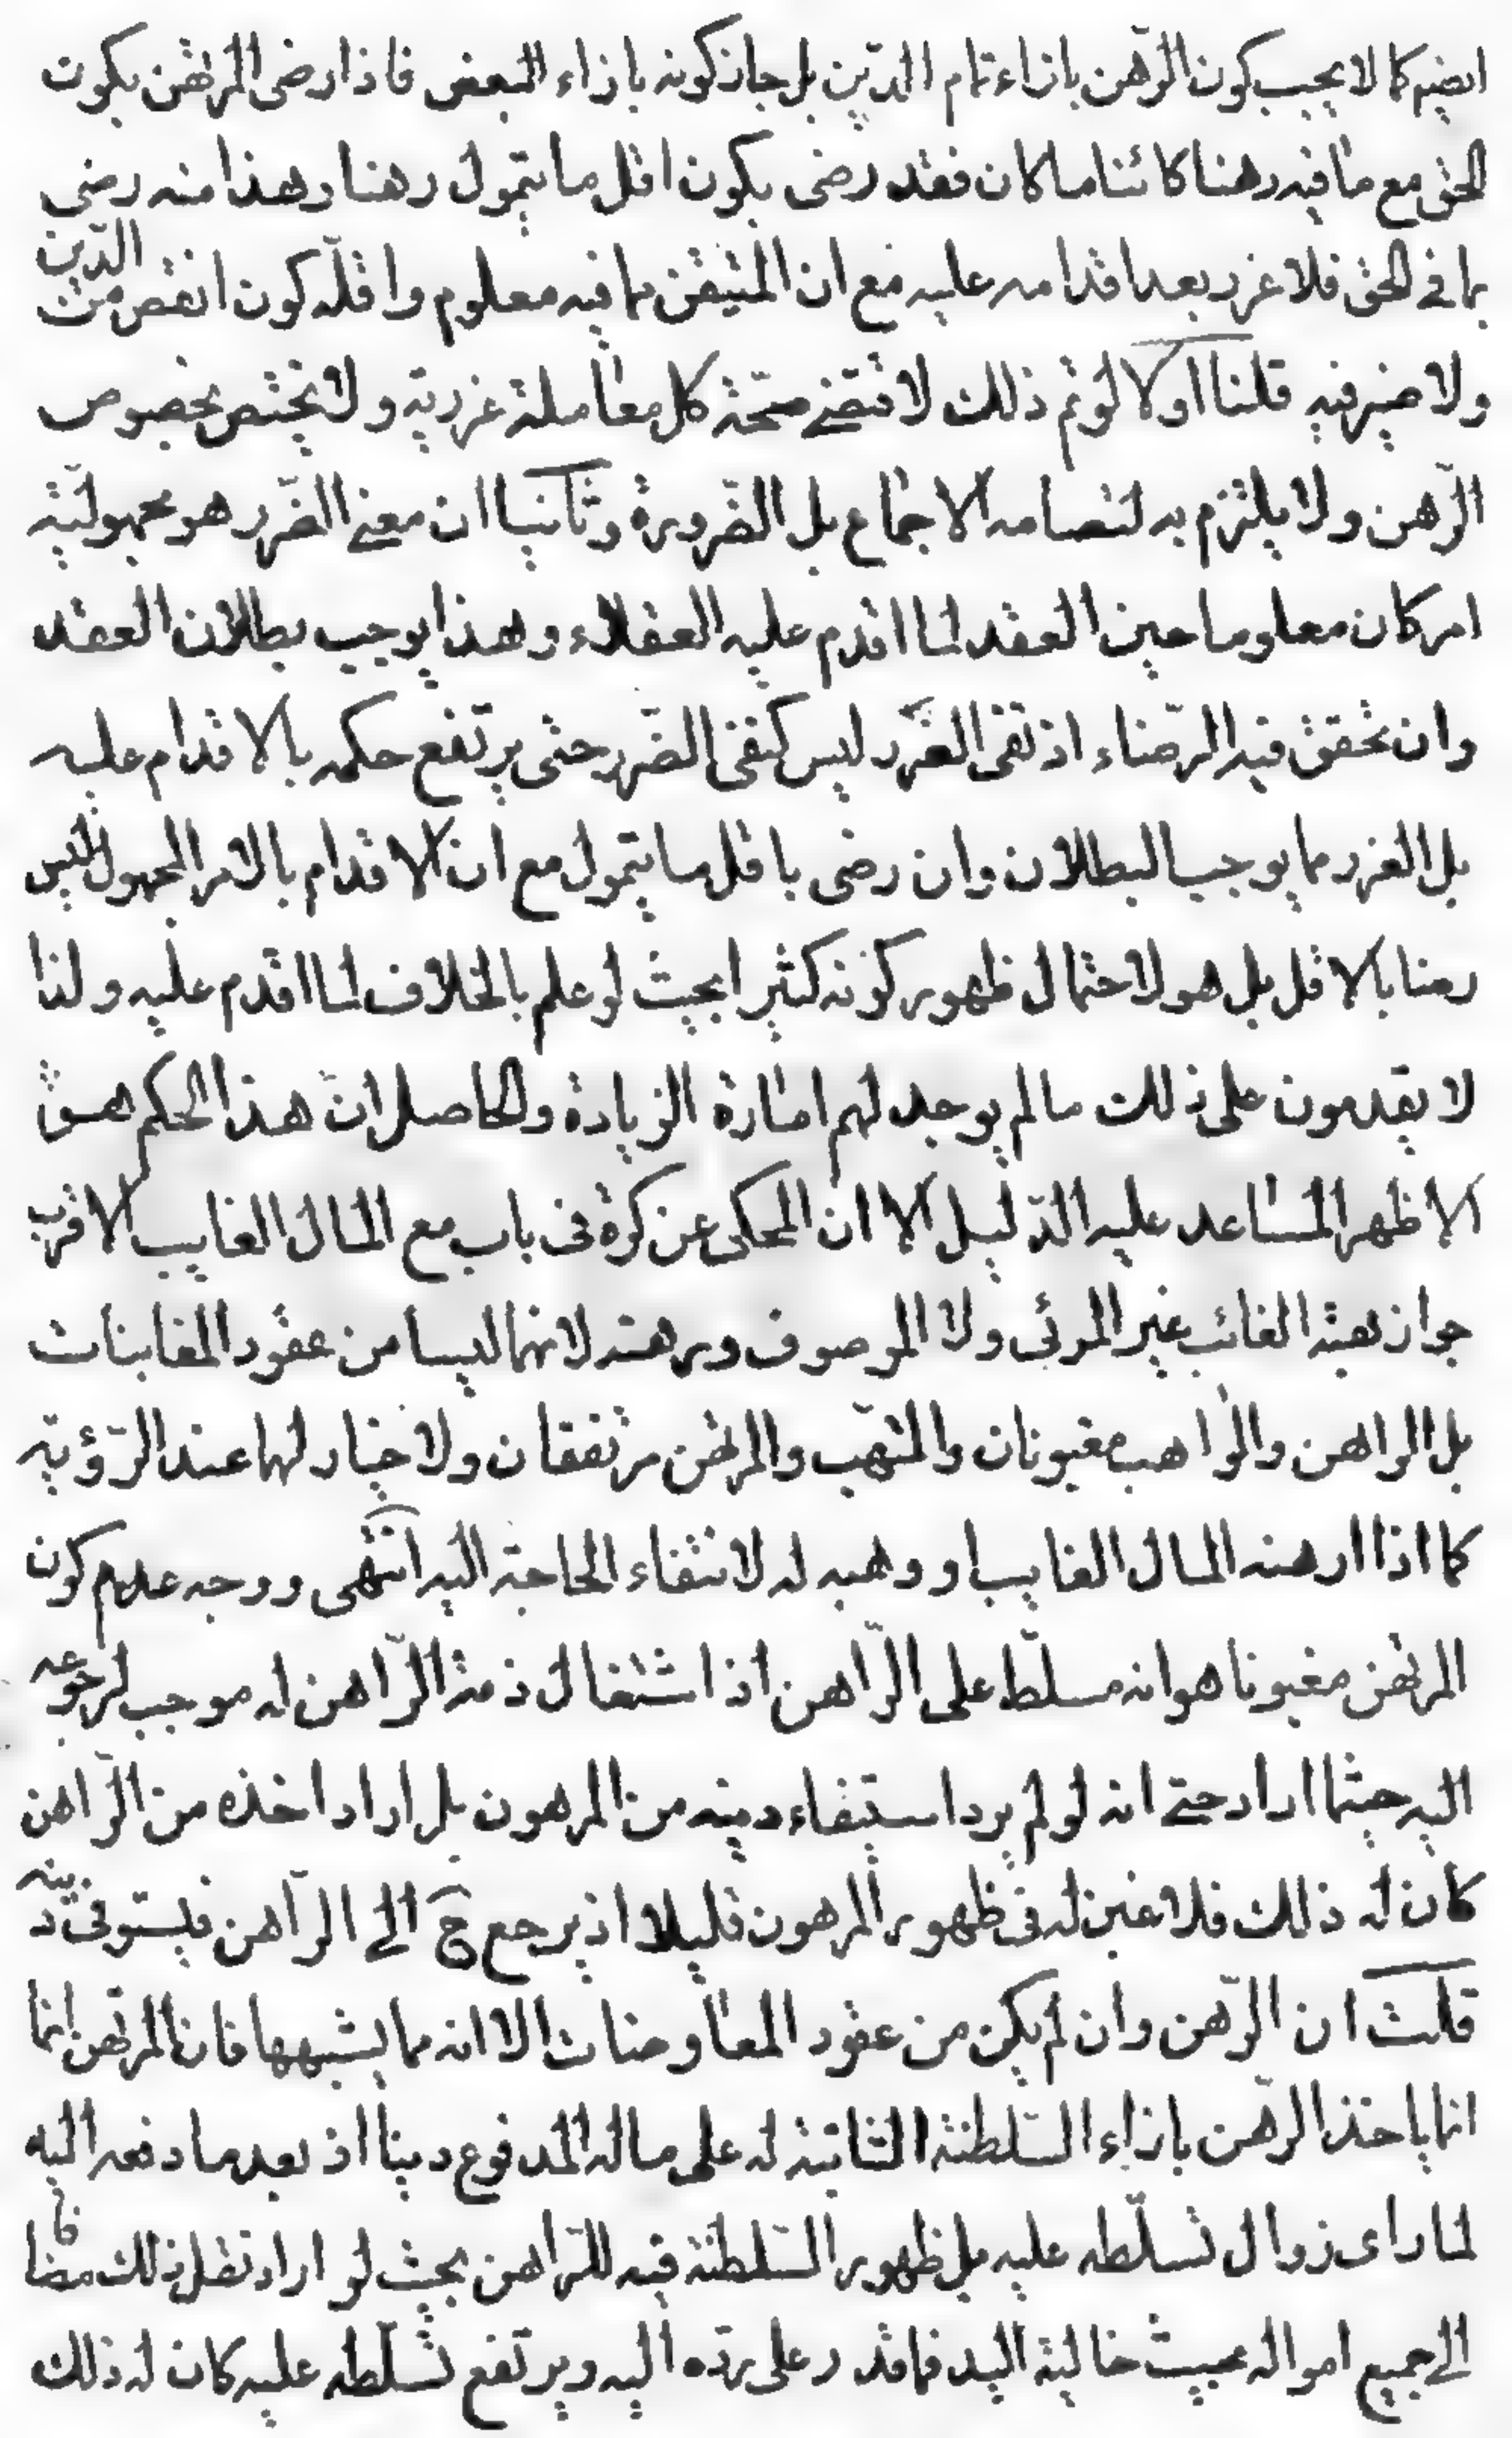 ايضم كما لا يجب كون الرّهن بازاء تمام الدّين بل جاز كونه بازاء البعض فاذا رضى المرتهن بكون
الحق مع ما فيه رهنا كائنا ما كان فقد رضى بكون اقل ما يتمول رهنا وهذا منه رضى
بما فى الحق فلا غرر بعد اقدامه عليه مع ان المتيقن مما فيه معلوم واقلّه كون انقص من الدّين
ولا ضير فيه قلنا اولا لو تم ذلك لاقتضى صحّة كل معاملة غررية ولا يختص بخصوص
الرّهن ولا يلتزم به لتصامه الاجماع بل الضّرورة وثانيا ان معنى الضّرر هو مجهوليّة
امر كان معلوما حين العقد لما اقدم عليه العقلاء وهذا يوجب بطلان العقد
وان تحقق فيه الرّضاء اذ نفى الغرر ليس كنفى الضّرر حتى يرتفع حكمه بالاقدام عليه
بل الغرر مما يوجب البطلان وان رضى باقل ما يتمول مع ان الاقدام بالامر المجهول ليس
رضا بالاقل بل هو لاحتمال ظهور كونه كثيرا بحيث لو علم بالخلاف لما اقدم عليه ولذا
لا يقدمون على ذلك ما لم يوجد لهم امارة الزيادة والحاصل ان هذا الحكم هو
الاظهر المساعد عليه الدّليل الا ان المحكى عن كرة فى باب مع المال الغايب الاقرب
جواز هبة الغائب غير المرئى ولا الموصوف ورهنه لانهما ليسا من عقود المغابنات
بل الراهن والواهب مغبونان والمتهب والمرتهن مرتفقان ولا خيار لهما عند الرّؤية
كما اذا ارهنه المال الغايب او وهبه له لانتفاء الحاجة اليه انتهى ووجه عدم كون
المرتهن مغبونا هو انه مسلّط على الرّاهن اذ اشتغال ذمة الرّاهن له موجب لرجوعه
اليه حيثما اراد حتى انه لو لم يرد استيفاء دينه من المرهون بل اراد اخذه من الرّاهن
كان له ذلك فلا غبن له فى ظهور المرهون قليلا اذ يرجع ح الى الراهن فيستوفى دينه
قلت ان الرّهن وان لم يكن من عقود المعاوضات الا انه مما يشبهها فان المرتهن انما
انما ياخذ الرّهن بازاء السّلطنة الثابتة له على ماله المدفوع دينا اذ بعد ما دفعه اليه
لما راى زوال تسلّطه عليه بل ظهور السّلطنة فيه للرّاهن بحيث لو اراد نقل ذلك مضافا
الى جميع امواله بحيث خالية اليد فما قدر على ردّه اليه ويرتفع تسلّطه عليه كان له ذلك